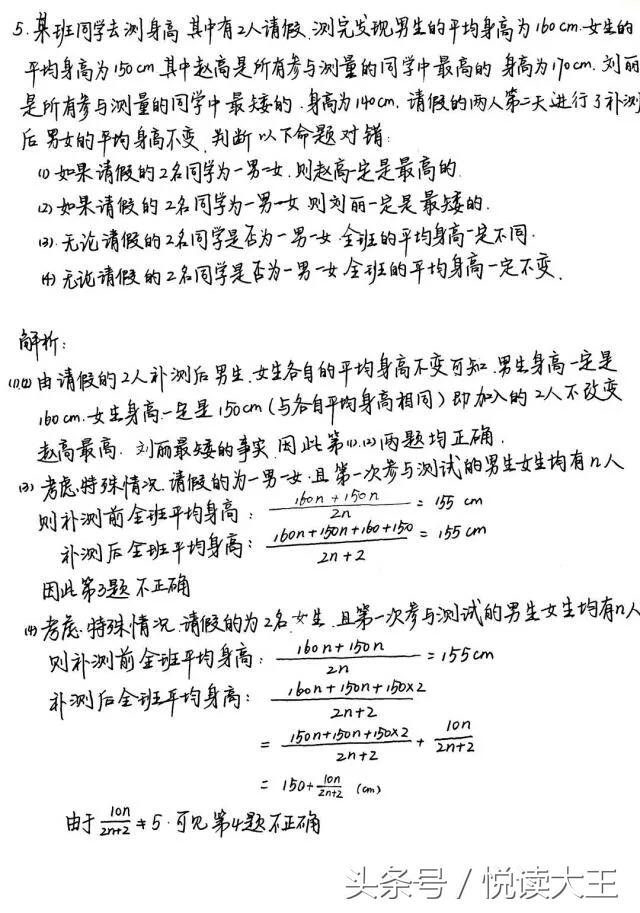 5. 某班同学去测身高 其中有2人请假.测完发现男生的平均身高为160cm.女生的
平均身高为150cm 其中赵高是所有参与测量的同学中最高的 身高为170cm. 刘丽
是所有参与测量的同学中最矮的.身高为140cm. 请假的两人第二天进行了补测
后 男女的平均身高不变 判断以下命题对错:
(1) 如果请假的2名同学为一男一女.则赵高一定是最高的.
(2) 如果请假的2名同学为一男一女 则刘丽一定是最矮的.
(3). 无论请假的2名同学是否为一男一女 全班的平均身高一定不同.
(4) 无论请假的2名同学是否为一男一女 全班的平均身高一定不变.
解析:
(1)(2) 由请假的2人补测后男生.女生各自的平均身高不变可知.男生身高一定是
160cm.女生身高一定是150cm(与各自平均身高相同)即加入的2人不改变
赵高最高. 刘丽最矮的事实 因此第(1).(2)两题均正确.
(3) 考虑特殊情况.请假的为一男一女.且第一次参与测试的男生女生均有n人
则补测前全班平均身高: (160n+150n)/2n = 155 cm
补测后全班平均身高: (160n+150n+160+150)/(2n+2) = 155cm
因此第3题不正确
(4) 考虑特殊情况.请假的为2名女生.且第一次参与测试的男生女生均有n人
则补测前全班平均身高: (160n+150n)/2n = 155cm
补测后全班平均身高: (160n+150n+150×2)/(2n+2)
= (150n+150n+150×2)/(2n+2) + 10n/(2n+2)
= 150+10n/(2n+2) (cm)
由于 10n/(2n+2) ≠ 5. 可见第4题不正确
头条号 / 悦读大王